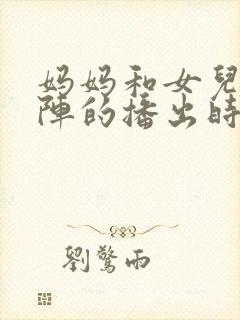 妈妈和女兒
陣的播出時
劉驚雨